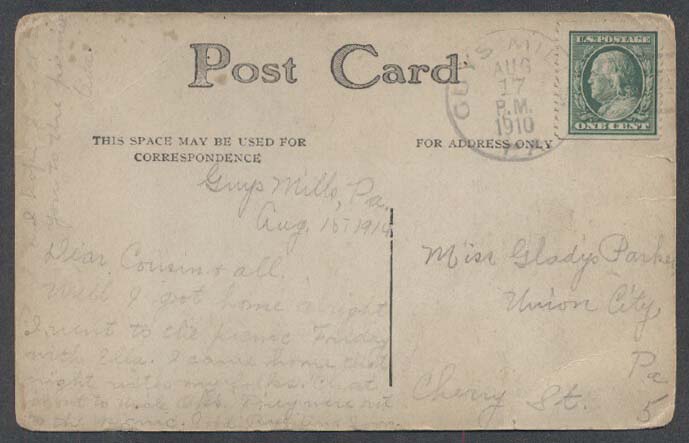 Post Card
GUYS MI
AUG
17
P.M.
1910
U.S. POSTAGE
ONE CENT
THIS SPACE MAY BE USED FOR
CORRESPONDENCE
FOR ADDRESS ONLY
Guys Mills, Pa.
Aug. 15, 1910
Dear Cousin & all.
Well I got home alright
I went to the picnic Friday
with Ella. I came home that
night with my folks.
went to Uncle They were not
to the picnic.
Miss Gladys Parker
Union City,
Pa
Cherry St.
5